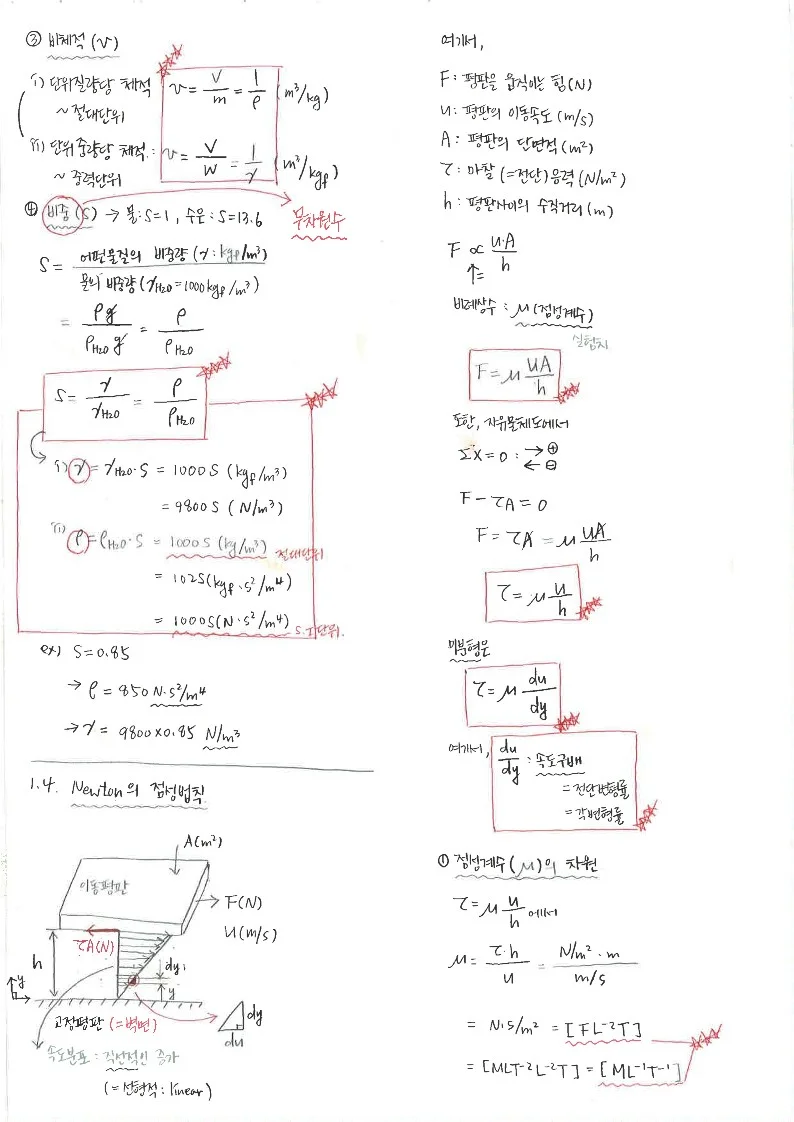 ③ 비체적 (v)
i) 단위질량당 체적 v = V/m = 1/ρ (m³/kg)
~ 절대단위
ii) 단위 중량당 체적 : v = V/W = 1/γ (m³/kgf)
~ 중력단위
④ 비중 (S) → 물: S=1, 수은: S=13.6 무차원수
S = 어떤물질의 비중량 (γ: kgf/m³) / 물의 비중량 (γH₂O = 1000 kgf/m³)
= ρg / ρH₂O g = ρ / ρH₂O
S = γ / γH₂O = ρ / ρH₂O
i) γ = γH₂O · S = 1000 S (kgf/m³)
= 9800 S (N/m³)
ii) ρ = ρH₂O · S = 1000 S (kg/m³) 절대단위
= 102 S (kgf · s²/m⁴)
= 1000 S (N · s²/m⁴) S.I 단위.
ex) S = 0.85
→ ρ = 850 N·s²/m⁴
→ γ = 9800×0.85 N/m³
1.4. Newton의 점성법칙
A(m²)
이동평판
F(N)
u(m/s)
τA(N)
h
dy
y
y
고정평판 (=벽면)
dy
du
속도분포 : 직선적인 증가
(=선형적 : linear)
여기서,
F : 평판을 움직이는 힘 (N)
u : 평판의 이동속도 (m/s)
A : 평판의 단면적 (m²)
τ : 마찰 (=전단) 응력 (N/m²)
h : 평판사이의 수직거리 (m)
F ∝ u·A / h
↑=
비례상수 : μ (점성계수)
실험치
F = μ uA/h
또한, 자유물체도에서
ΣX = 0 : → ⊕
← ⊖
F − τA = 0
F = τA = μ uA/h
τ = μ u/h
미분형은
τ = μ du/dy
여기서, du/dy : 속도구배
= 전단변형률
= 각변형률
① 점성계수 (μ)의 차원
τ = μ u/h 에서
μ = τ·h / u = N/m² · m / m/s
= N·s/m² = [FL⁻²T]
= [MLT⁻²L⁻²T] = [ML⁻¹T⁻¹]